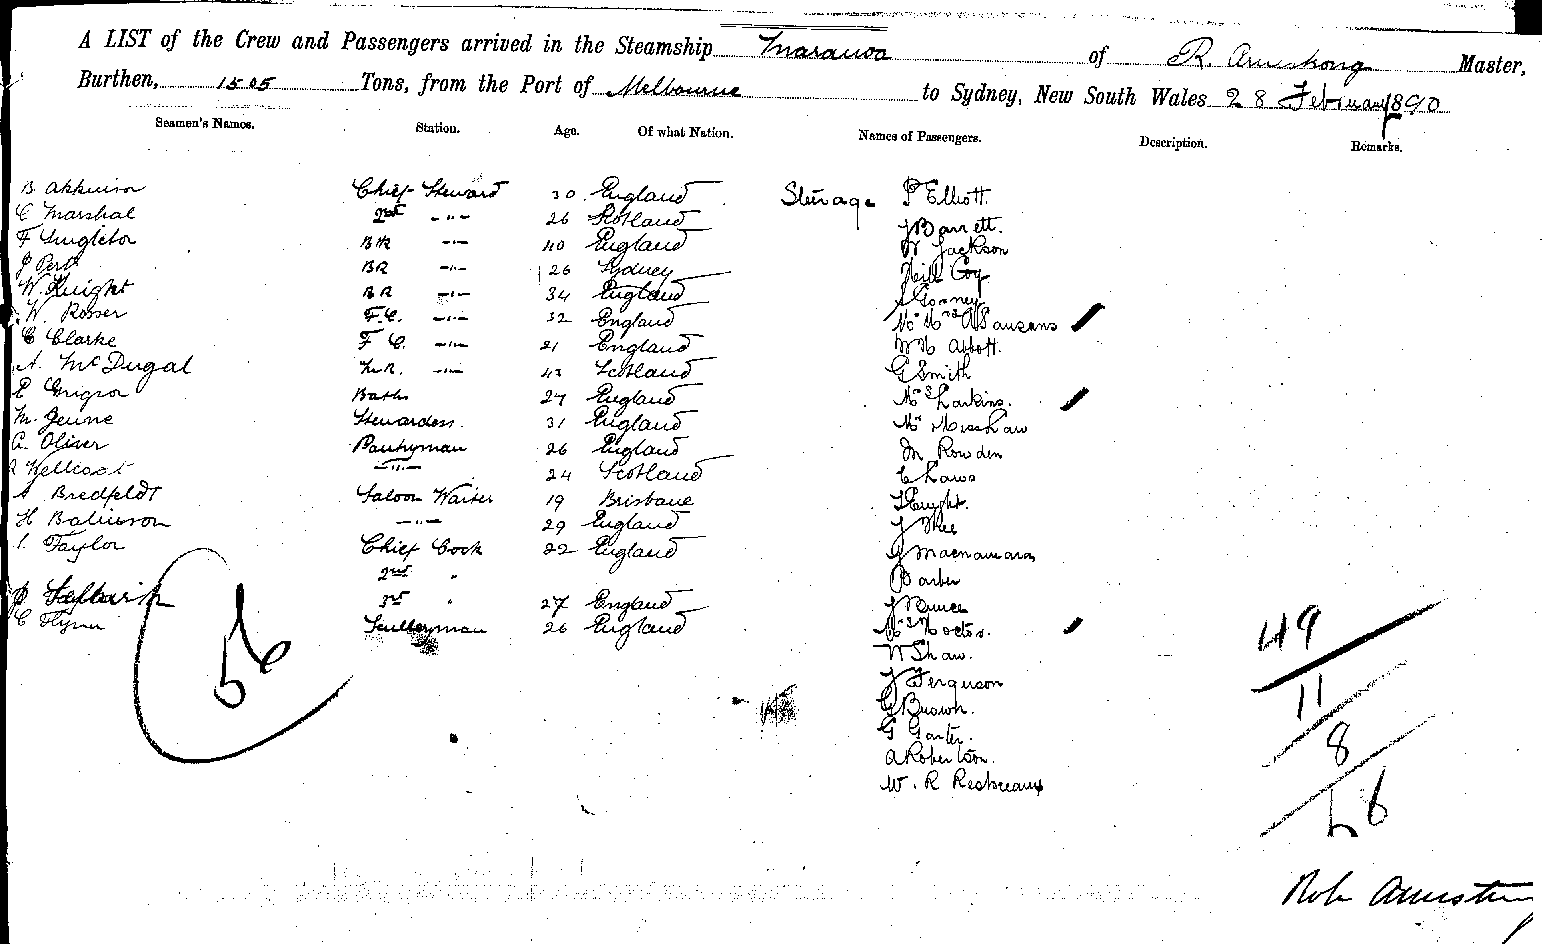 A LIST of the Crew and Passengers arrived in the Steamship Mararoa of R. Armstrong Master,
Burthen, 1505 Tons, from the Port of Melbourne to Sydney, New South Wales 28 February 1890
Seamen's Names. Station. Age. Of what Nation. Names of Passengers. Description. Remarks.
B Atkinson Chief Steward 30 England Steerage P Elliott.
C Marshal 2nd -"- 26 Scotland J Barrett.
F Singleton BR -"- 40 England W Jackson
J Pert BR -"- 26 Sydney Neill Coy
W. Knight BR -"- 34 England
W. Rosser F.C. -"- 32 England Mr Mrs
C Clarke F C. -"- 21 England W H Abbott.
A. McDugal -"- 43 Scotland G Smith
E Grigson Baths 27 England Mrs Larkins.
M. Jeune Stewardess. 31 England Mr Miss Shaw
A. Oliver Pantryman 26 England M Rowden
-"- 24 Scotland C Laws
A Bredfeldt Saloon Waiter 19 Brisbane
H -"- 29 England J
I. Taylor Chief Cook 22 England G Macnamara
2nd " Barber
J 3rd " 27 England J
C Flynn Sculleryman 26 England Mrs
W Shaw.
J Ferguson
G Brown.
G Garter.
A Robertson.
W. R
56
49
11
8
66
Rob Armstrong